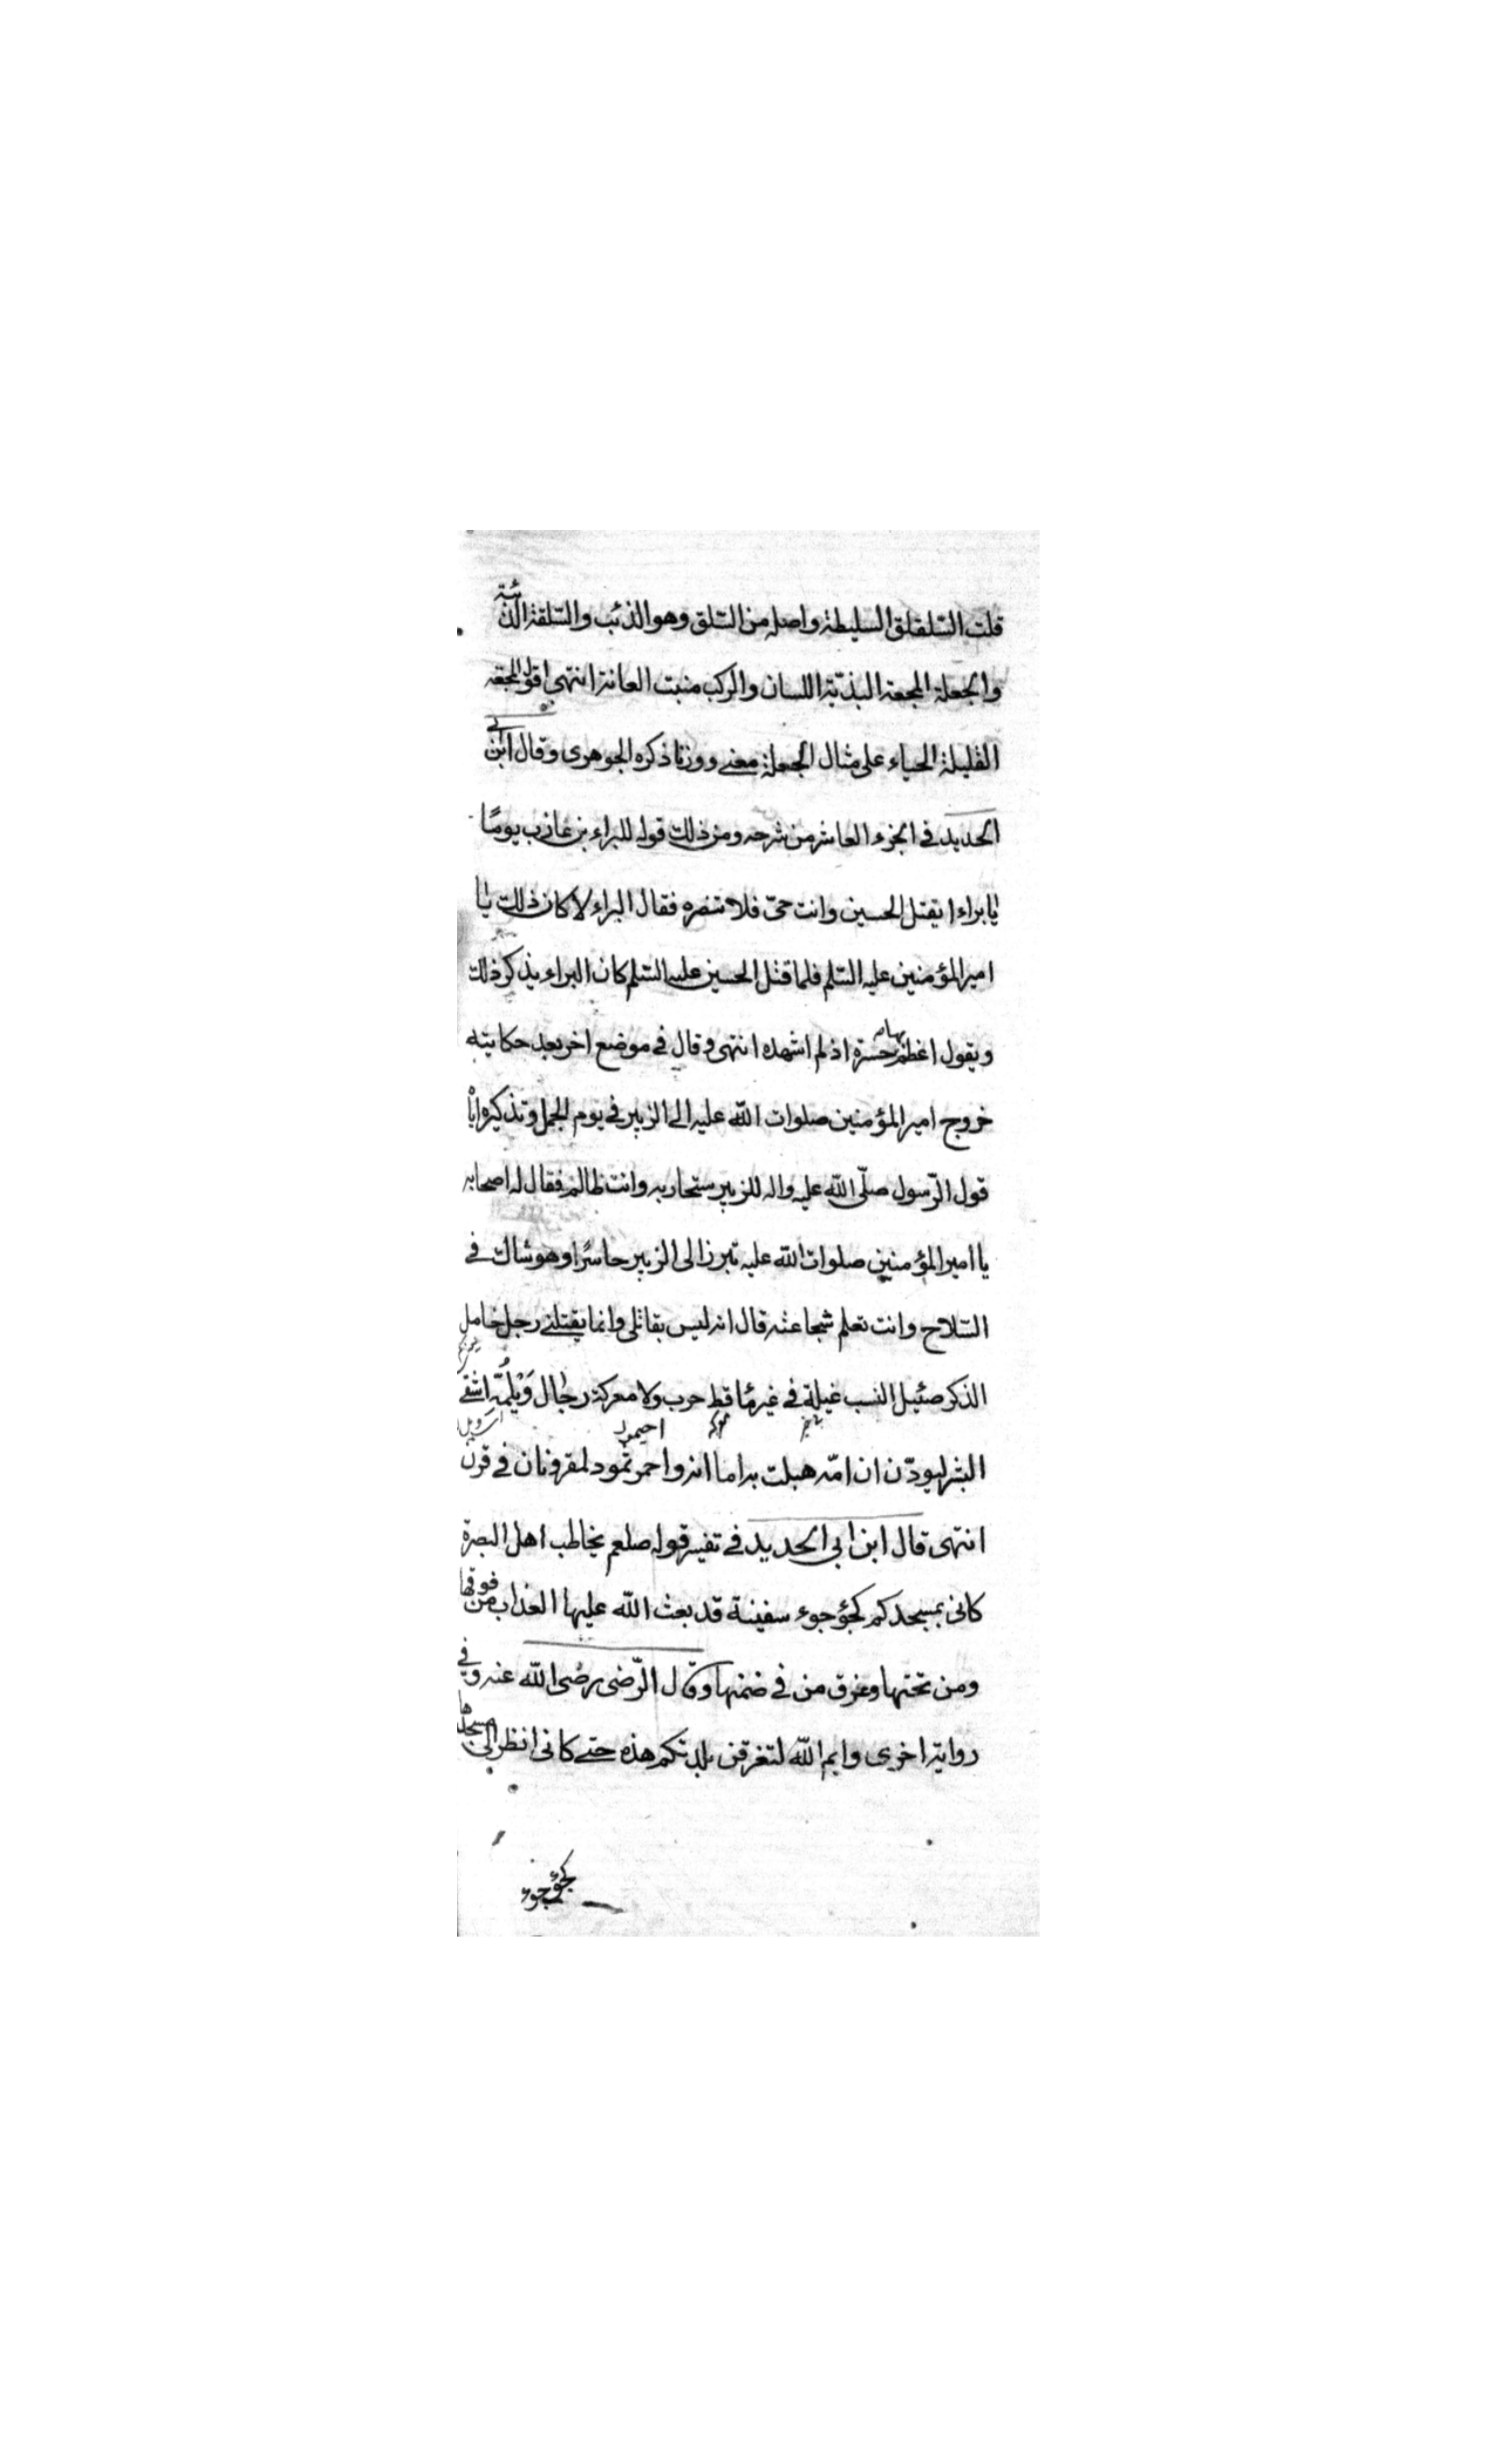 قلت السلقلق السليطة واصله من السلق وهو الذئب والسلقة الذئبة
والجعلة المجعة البذيّة اللسان والركب منبت العانة انتهى اقول المجعه
القليلة الحياء على مثال الجعلة معنى ووزنا ذكره الجوهرى وقال ابن ابى
الحديد فى الجزء العاشر من شرحه ومن ذلك قوله للبراء بن عازب يومًا
يا براء ايقتل الحسين وانت حىّ فلا تنصره فقال البراء لا كان ذلك يا
امير المؤمنين عليه السّلم فلما قتل الحسين عليه السّلم كان البراء يذكر ذلك
ويقول اعظم بها حسرة اذ لم اشهده انتهى وقال فى موضع اخر بعد حكايته
خروج امير المؤمنين صلوات اللّه عليه الى الزبير فى يوم الجمل وتذكيره اياه
قول الرّسول صلّى اللّه عليه واله للزبير ستحاربه وانت ظالم فقال له اصحابه
يا امير المؤمنين صلوات اللّه عليه تبرز الى الزبير حاسرًا وهو شاك فى
السّلاح وانت تعلم شجاعته قال انه ليس بقاتلى وانما يقتلنى رجل خامل
الذكر ضئيل النسب غيلة فى غير مأقط حرب ولا معركة رجال وَيْلُمِّه اشقى
البشر ليودّن ان امّه هبلت به اما انه واحمر ثمود لمقرونان فى قرن
احيمر
انتهى قال ابن ابى الحديد فى تفسير قوله صلعم يخاطب اهل البصرة
كانى بمسجدكم كجؤجوء سفينة قد بعث اللّه عليها العذاب من فوقها
ومن تحتها وغرق من فى ضمنها وقال الرّضى رضى اللّه عنه وفى
رواية اخرى وايم اللّه لتغرقن بلدتكم هذه حتى كانى انظر الى مسجدها
كجؤجوء